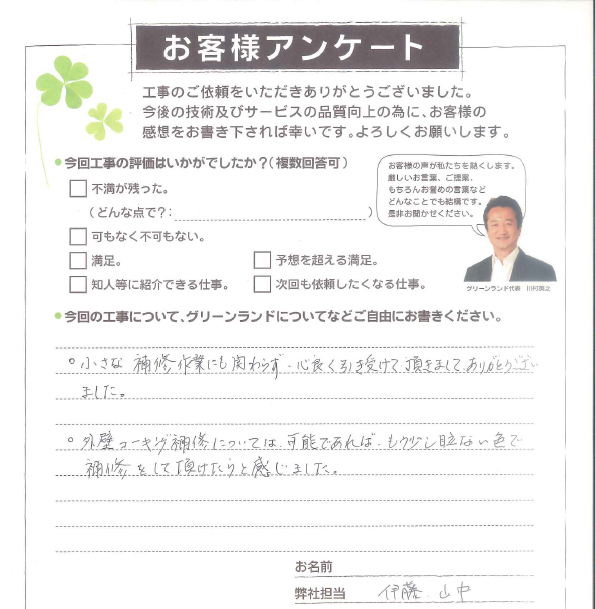 お客様アンケート
工事のご依頼をいただきありがとうございました。
今後の技術及びサービスの品質向上の為に、お客様の
感想をお書き下されば幸いです。よろしくお願いします。
•今回工事の評価はいかがでしたか？（複数回答可）
お客様の声が私たちを熱くします。
厳しいお言葉、ご提案、
もちろんお誉めの言葉など
どんなことでも結構です。
是非お聞かせください。
グリーンランド代表 川村眞之
不満が残った。
（どんな点で？：　）
可もなく不可もない。
満足。 予想を超える満足。
知人等に紹介できる仕事。 次回も依頼したくなる仕事。
•今回の工事について、グリーンランドについてなどご自由にお書きください。
○小さな補修作業にも関わらず、心良く引き受けて頂きましてありがとうござい
ました。
○外壁コーキング補修については、可能であれば、もう少し目立たない色で
補修をして頂けたらと感じました。
お名前
弊社担当 伊藤、山中